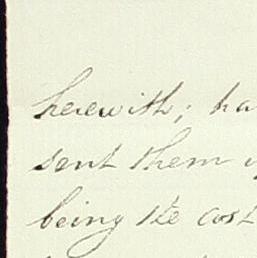 herewith; ha
sent them
being the cost